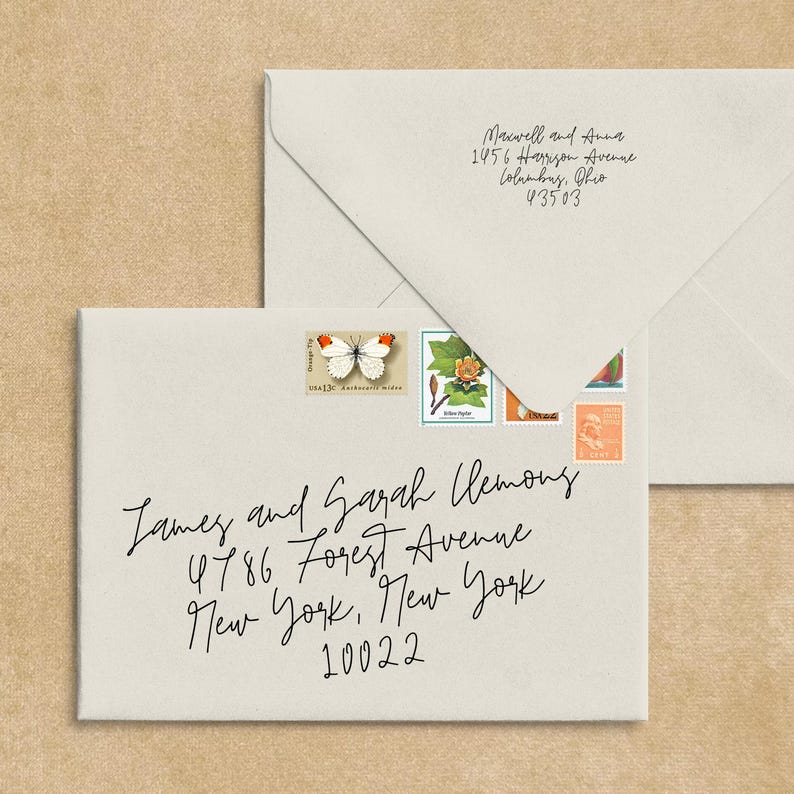 Maxwell and Anna
1456 Harrison Avenue
Columbus, Ohio
43503
Orange-Tip
USA 13c Anthocaris midea
Yellow Poplar
USA 22
UNITED
STATES
POSTAGE
1/2 CENT 1/2
James and Sarah Clemons
4786 Forest Avenue
New York, New York
10022